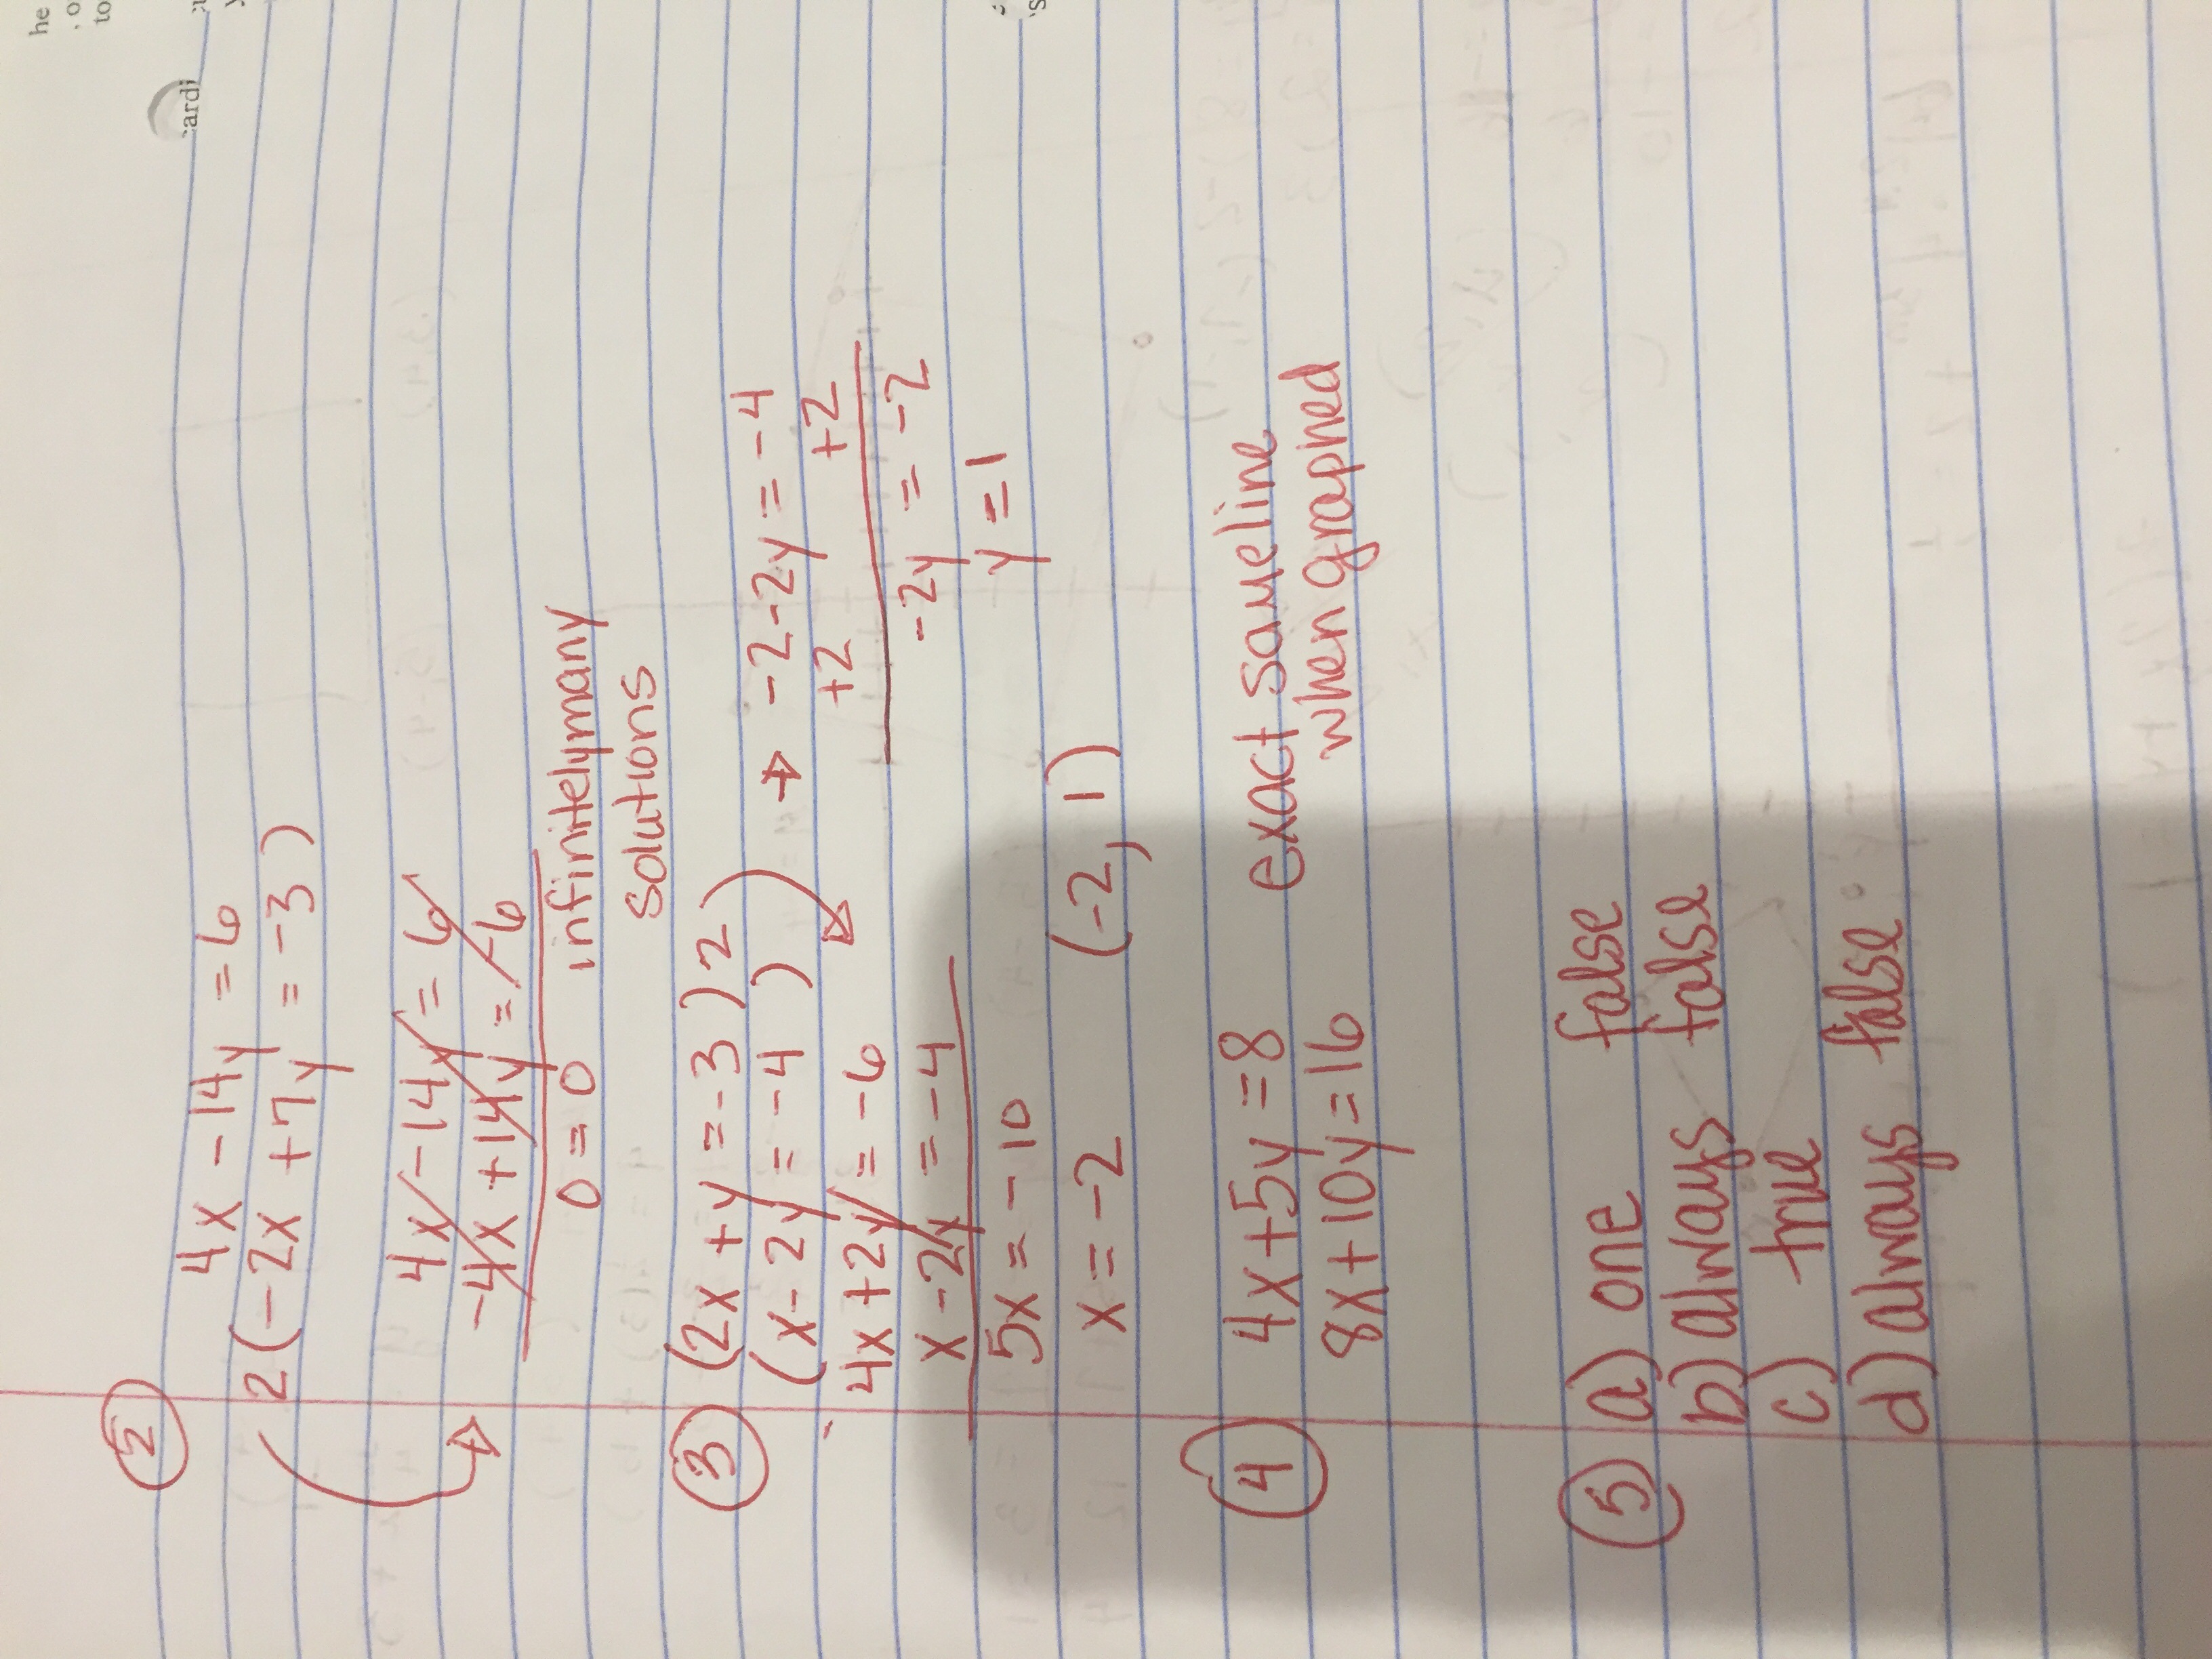 ② 4x - 14y = 6
2(-2x + 7y = -3)
4x - 14y = 6
-4x + 14y = -6
0 = 0 infinitely many
solutions
③ (2x + y = -3)2
(x - 2y = -4)
4x + 2y = -6
x - 2y = -4
5x = -10
x = -2
→ -2 - 2y = -4
+2 +2
-2y = -2
y = 1
(-2, 1)
④ 4x + 5y = 8 exact same line
8x + 10y = 16 when graphed
⑤ a) one false
b) always false
c) true
d) always false
he
to
ard